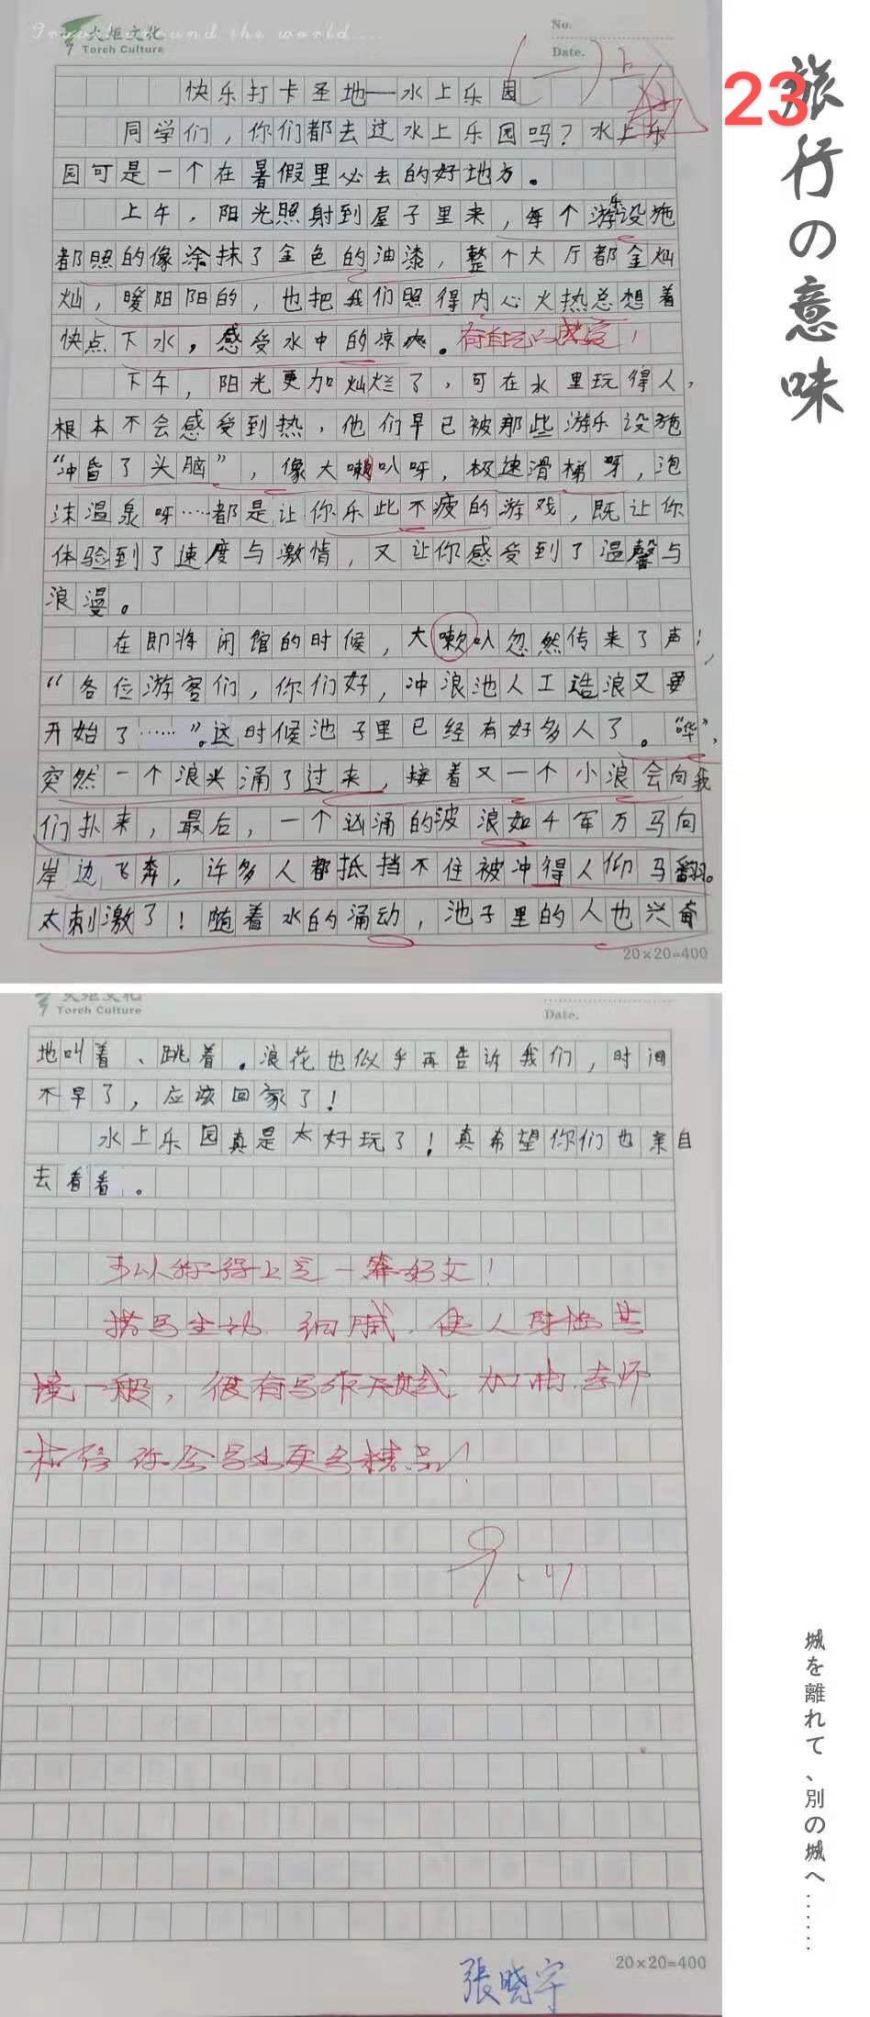 Travel around the world....
火炬文化
Torch Culture
No.
Date.
23
快乐打卡圣地—水上乐园
同学们，你们都去过水上乐园吗？水上乐
园可是一个在暑假里必去的好地方。
上午，阳光照射到屋子里来，每个游乐设施
都照的像涂抹了金色的油漆，整个大厅都金灿
灿，暖阳阳的，也把我们照得内心火热总想着
快点下水，感受水中的凉爽。有自己的感受！
下午，阳光更加灿烂了，可在水里玩得人，
根本不会感受到热，他们早已被那些游乐设施
“冲昏了头脑”，像大喇叭呀，极速滑梯呀，泡
沫温泉呀……都是让你乐此不疲的游戏，既让你
体验到了速度与激情，又让你感受到了温馨与
浪漫。
在即将闭馆的时候，大喇叭忽然传来了声：
“各位游客们，你们好，冲浪池人工造浪又要
开始了……”。这时候池子里已经有好多人了。“哗”，
突然一个浪头涌了过来，接着又一个小浪会向我
们扑来，最后，一个汹涌的波浪如千军万马向
岸边飞奔，许多人都抵挡不住被冲得人仰马翻。
太刺激了！随着水的涌动，池子里的人也兴奋
20×20=400
火炬文化
Torch Culture
Date.
地叫着、跳着。浪花也似乎再告诉我们，时间
不早了，应该回家了！
水上乐园真是太好玩了！真希望你们也亲自
去看看。
可以称得上是一篇好文！
描写生动、细腻，使人身临其
境一般，很有写作天赋，加油，老师
相信你会写出更多精品！
9.11
20×20=400
張晓宇
旅行の意味
城を離れて、別の城へ……